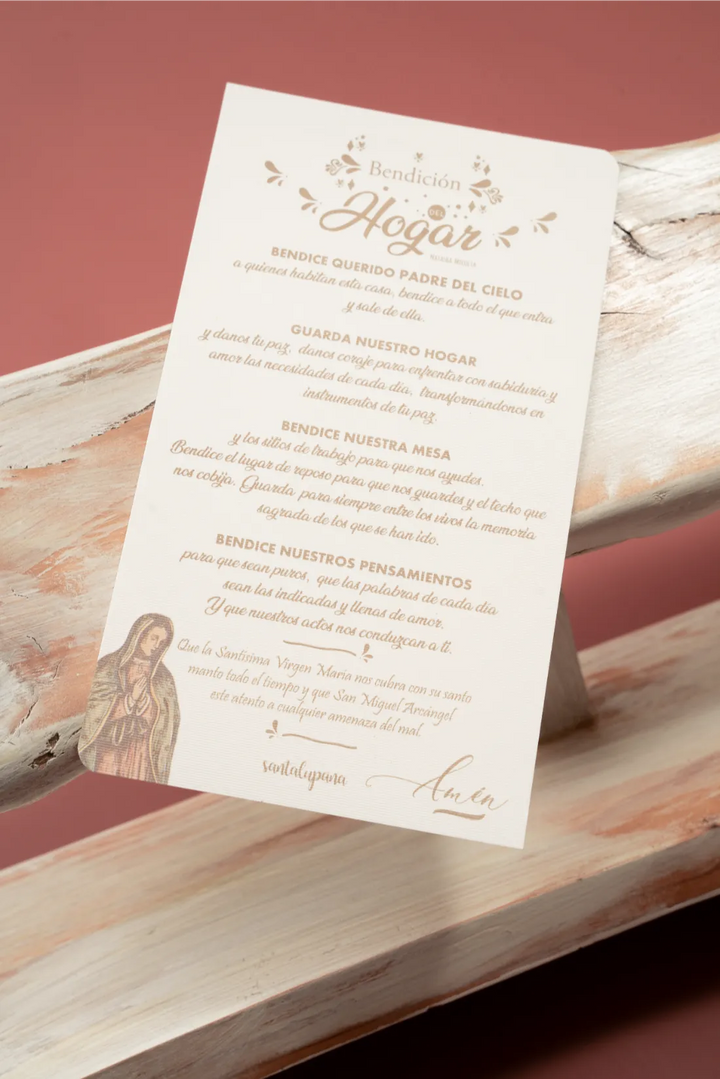 Bendición
DEL
Hogar
BENDICE QUERIDO PADRE DEL CIELO
a quienes habitan esta casa, bendice a todo el que entra
y sale de ella.
GUARDA NUESTRO HOGAR
y danos tu paz, danos coraje para enfrentar con sabiduria y
amor las necesidades de cada día, transformándonos en
instrumentos de tu paz.
BENDICE NUESTRA MESA
y los sitios de trabajo para que nos ayudes.
Bendice el lugar de reposo para que nos guardes y el techo que
nos cobija. Guarda para siempre entre los vivos la memoria
sagrada de los que se han ido.
BENDICE NUESTROS PENSAMIENTOS
para que sean puros, que las palabras de cada día
sean las indicadas y llenas de amor.
Y que nuestros actos nos conduzcan a ti.
Que la Santísima Virgen Maria nos cubra con su santo
manto todo el tiempo y que San Miguel Arcángel
este atento a cualquier amenaza del mal.
santalupana
Amén